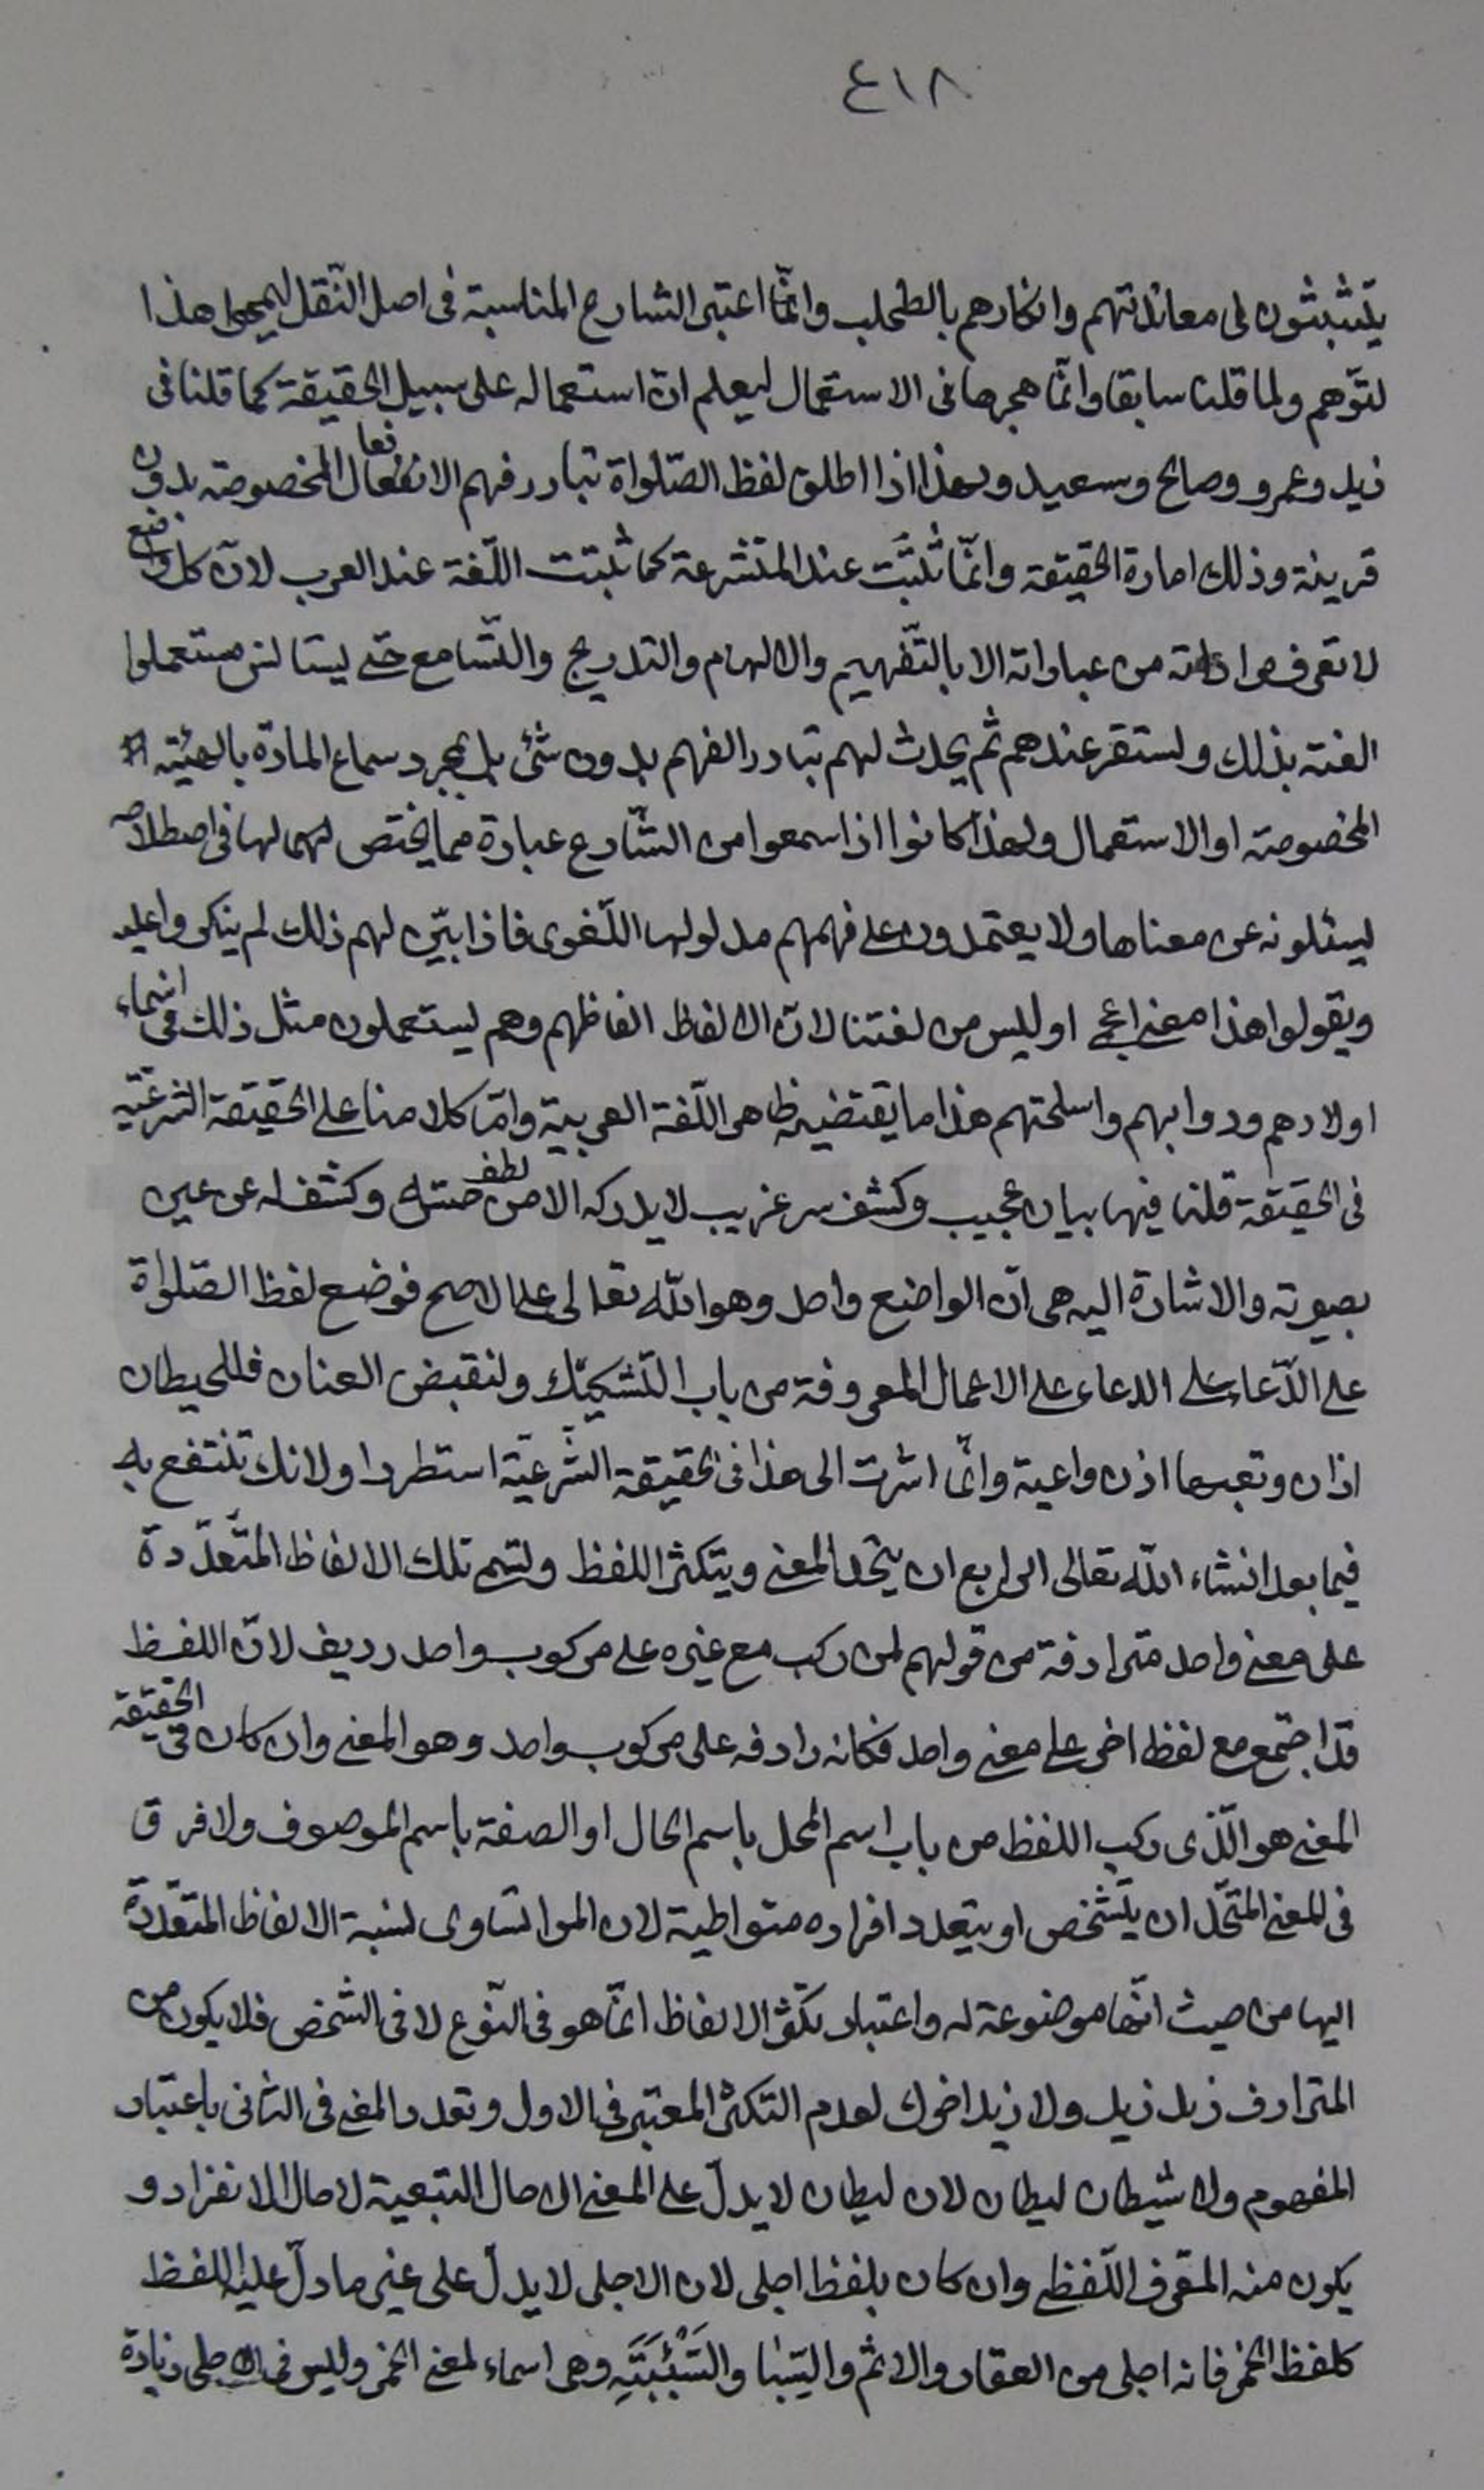 ٤١٨
يتشبثون فى معاندتهم وانكارهم بالطحلب وانّما اعتبر الشارع المناسبة فى اصل النّقل هذا
لتوّهم ولما قلنا سابقا وانّما هجرها فى الاستعمال ليعلم انّ استعماله على سبيل الحقيقة كما قلنا فى
زيد وعمرو وصالح وسعيد ولهذا اذا اطلق لفظ الصّلواة تبادر فهم الافعال المخصوصة بدون
قرينة وذلك امارة الحقيقة وانّما ثبتت عند المتشرعة كما ثبتت اللّغة عند العرب لانّ كل واضع
لا تعرف من عباراته الا بالتّفهيم والالهام والتدريج والتّسامع حتى يستانس مستعملوا
الغته بذلك ولستقر عندهم ثم يحدث لهم تبادر الفهم بدون شئ بل بمجرد سماع المادّة بالهيئة
المخصوصة او الاستعمال ولهذا كانوا اذا سمعوا من الشّارع عبارة مما يختص لها فى اصطلاحه
ليسئلونه عن معناها ولا يعتمدون على فهمهم مدلولها اللّغوى فاذا بيّن لهم ذلك لم ينكروا عليه
ويقولوا هذا معنى اوليس من لغتنا لانّ الالفاظ الفاظهم وهم يستعملون مثل ذلك فى اسماء
اولادهم ودوابهم واسلحتهم هذا ما يقتضيه ظاهر اللّغة العربية وامّا كلامنا على الحقيقة الشرعيّة
فى الحقيقة قلنا فيها بيان عجيب وكشف سر غريب لا يدركه الا من لطف حسّه وكشف له عن عين
بصيرته والاشارة اليه هى انّ الواضع واحد وهو اللّه تعالى على الاصح فوضع لفظ الصّلواة
على الدّعاء على الدعاء على الاعمال المعروفة من باب التّشكيك ولنقبض العنان فللحيطان
اذان وتعيها اذن واعية وانّما اشرت الى هذا فى الحقيقة الشّرعيّة استطردا ولانك تنتفع به
فيما بعد انشاء اللّه تعالى الرابع ان يتحد المعنى ويتكثر اللفظ ولتسم تلك الالفاظ المتّعدّدة
على معنى واحد مترادفة من قولهم لمن ركب مع غيره على مركوب واحد رديف لانّ اللفظ
قد اجتمع مع لفظ اخر على معنى واحد فكانه رادفه على مركوب واحد وهو المعنى وان كان فى الحقيقة
المعنى هو الّذى ركب اللفظ من باب اسم المحل باسم الحال او الصفة باسم الموصوف ولا فرق
فى المعنى المتحّد ان يتشخص او يتعدد افراده متواطية لان تساوى لنسبة الالفاظ المتعدّدة
اليها من حيث انّها موضوعة له واعتبار تكثر الالفاظ انّما هو فى النّوع لا فى الشخص فلا يكون من
المترادف زيد زيد ولا زيد اخوك لعدم التكثر المعتبر فى الاول وتعدد المعنى فى الثانى باعتبار
المفهوم ولا شيطان ليطان لان ليطان لا يدلّ على المعنى الا حال التبعية لا حال الانفراد و
يكون منه المعّرف اللّفظى وان كان بلفظ اجلى لان الاجلى لا يدلّ على غير ما دلّ عليه اللفظ
كلفظ الخمر فانه اجلى من العقار والاثم وهى اسماء لمعنى الخمر وليس فى الاجلى زيادة